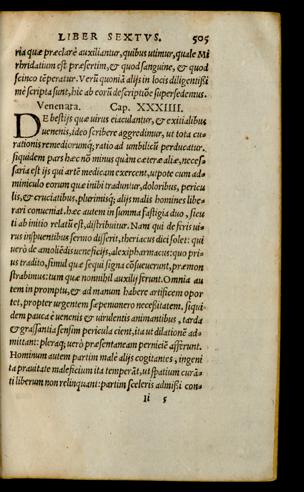 LIBER SEXTVS. 505
ria quæ præclarè auxiliantur, quibus utimur, quale Mi
thridatium est præsertim, & quod sanguine, & quod
scinco tẽperatur. Verũ quoniã alijs in locis diligentissi
mè scripta sunt, hic ab eorũ descriptiõe supersedemus.
Venenata. Cap. XXXIIII.
DE bestijs quæ uirus eiaculantur, & exitialibus
uenenis, ideo scribere aggredimur, ut tota cu
rationis remediorumq; ratio ad umbilicũ perducatur.
siquidem pars hæc nõ minus quàm cæteræ aliæ, neces-
saria est ijs qui artẽ medicam exercent, utpote cum ad-
miniculo eorum quæ inibi traduntur, doloribus, pericu
lis, & cruciatibus, plurimisq; alijs malis homines libe-
rari conueniat. hæc autem in summa fastigia duo, sicu
ti ab initio relatũ est, distribuitur. Nam qui de feris ui-
rus inspuentibus sermo disserit, theriacus dici solet: qui
uerò de amoliẽdis ueneficijs, alexipharmacus: quo pri-
us tradito, simul quæ sequi signa cõsueuerunt, præmon
strabimus: tum quæ nonnihil auxilij ferunt. Omnia au
tem in promptu, & ad manum habere artificem opor
tet, propter urgentem sæpenumero necessitatem. siqui-
dem pauca è uenenis & uirulentis animantibus, tarda
& grassantia sensim pericula cient, ita ut dilationẽ ad-
mittant: pleraq; uerò præsentaneam perniciẽ afferunt.
Hominum autem partim malè alijs cogitantes, ingeni
ta prauitate maleficium ita temperãt, ut spatium curã-
ti liberum non relinquant: partim sceleris admissi con-
Ii 5